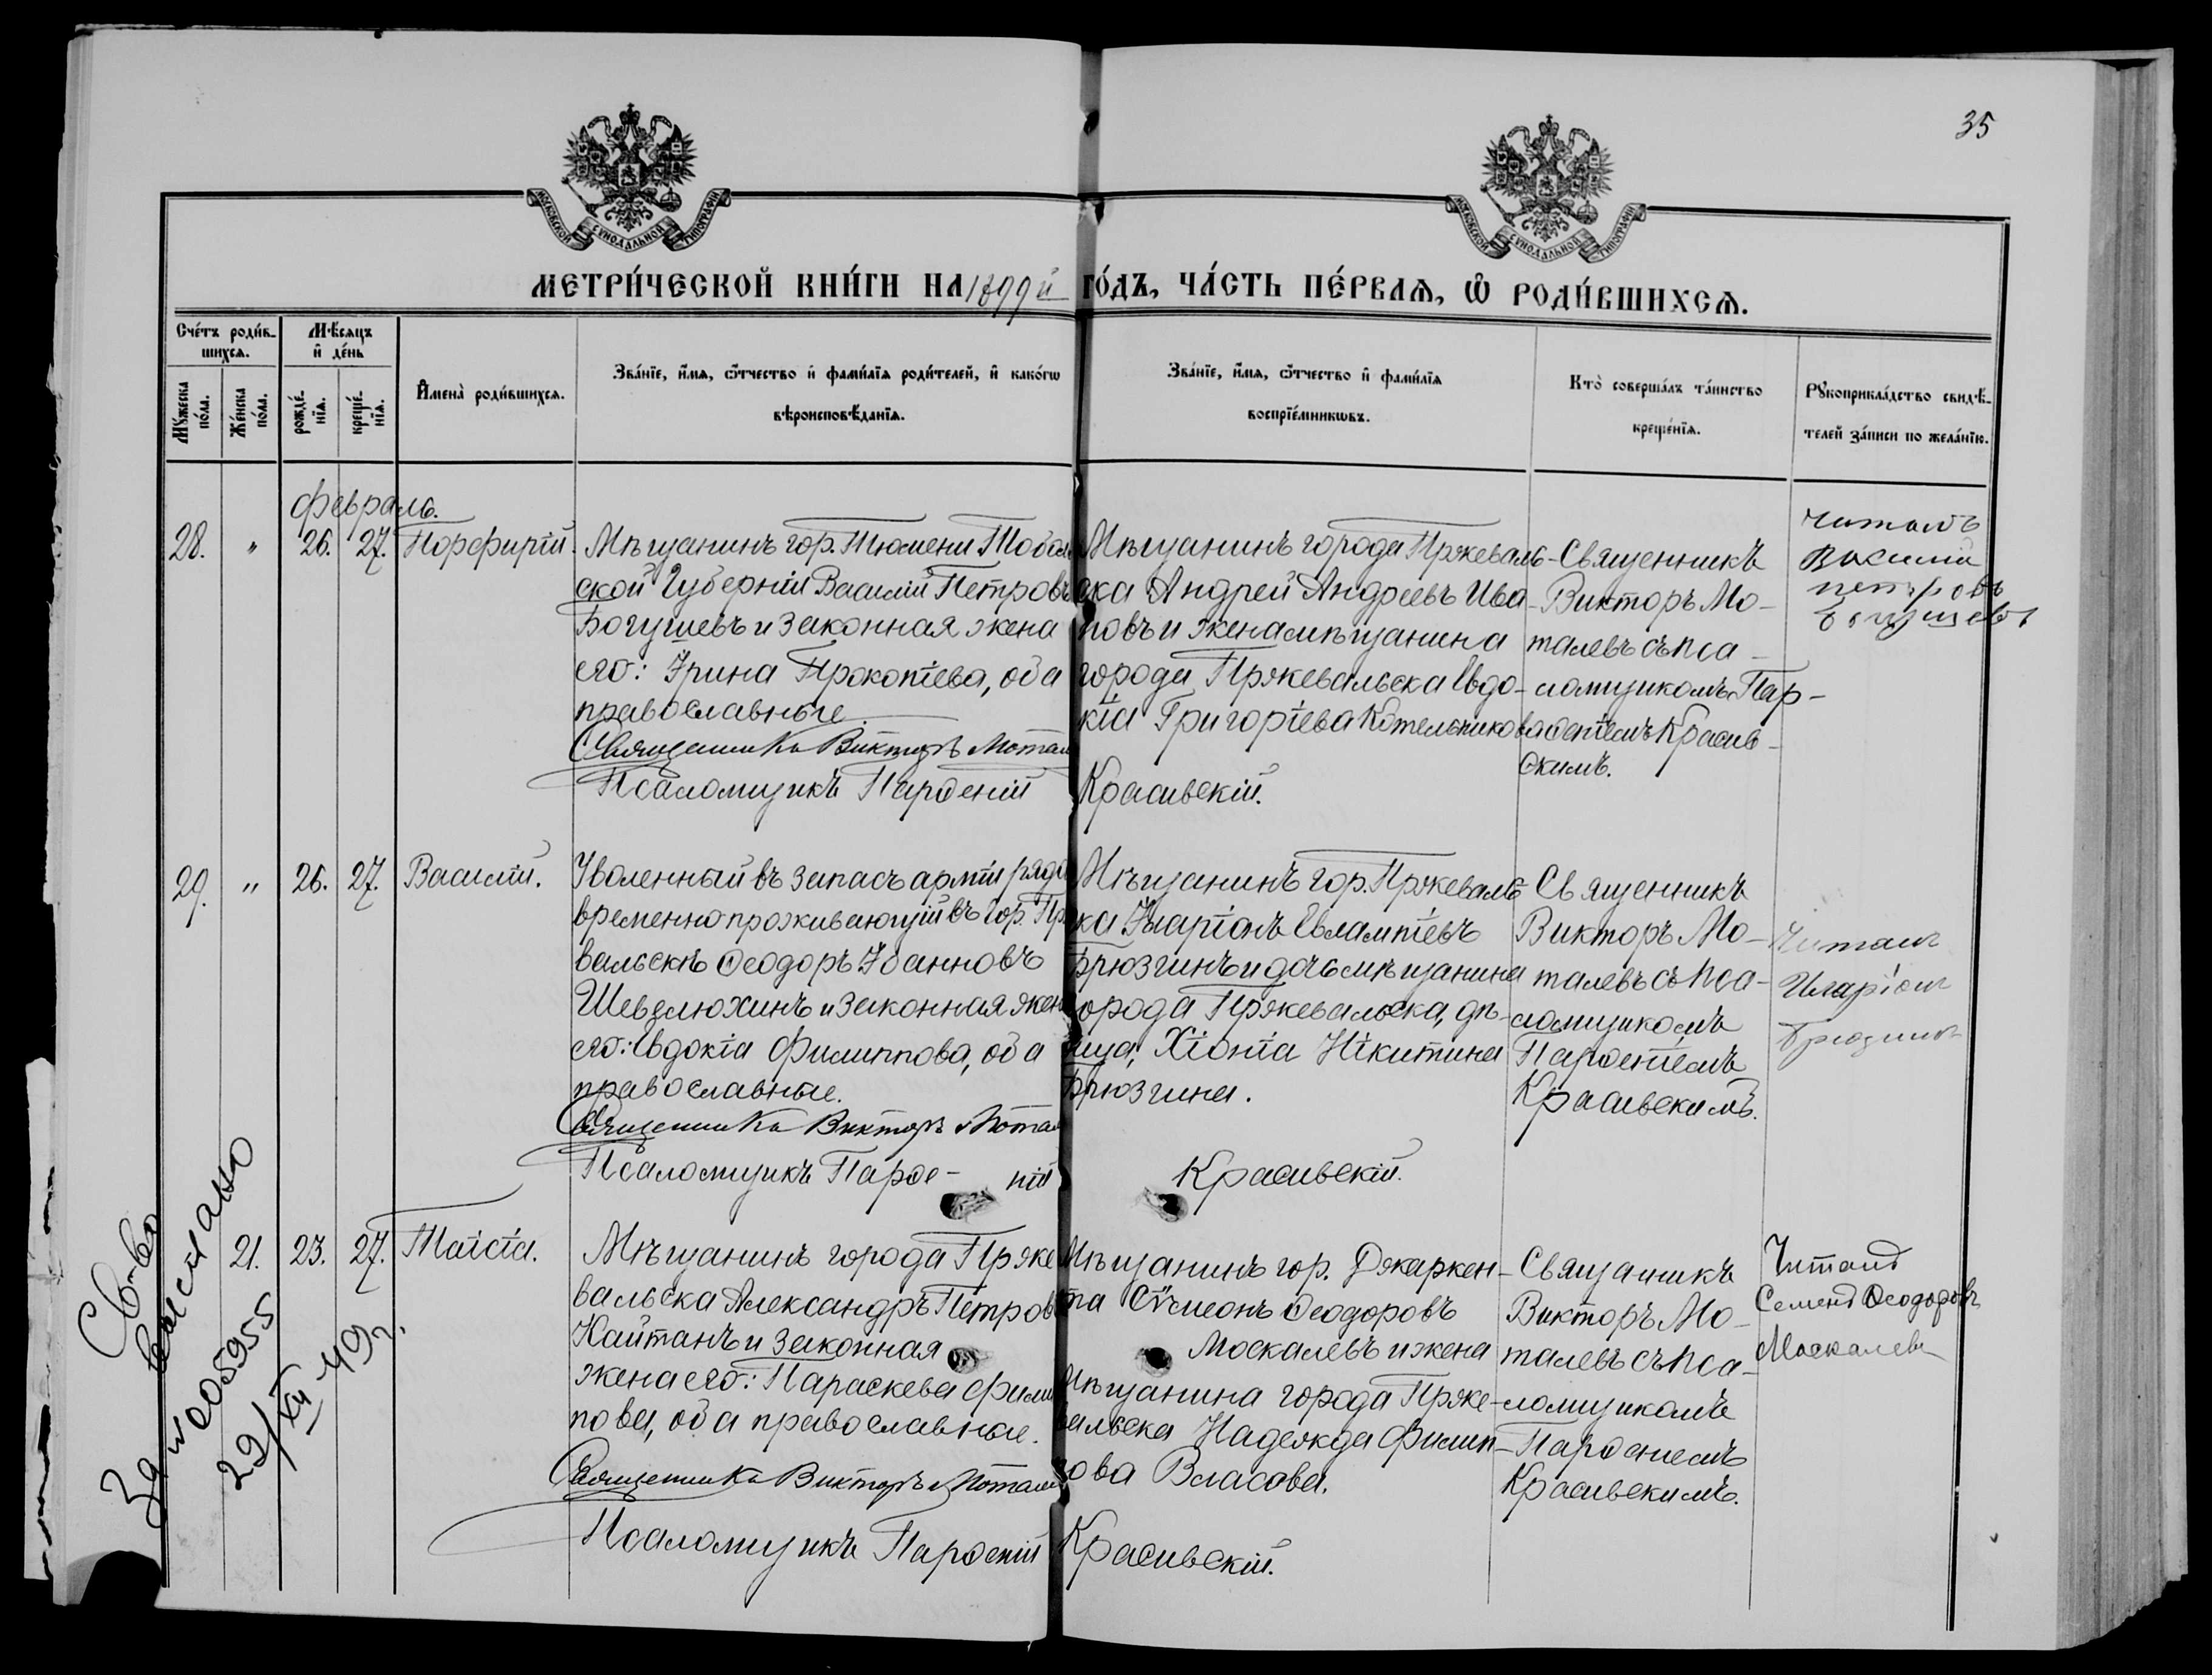 35
МОСКОВСКОЙ СѴНОДАЛЬНОЙ ТИПОГРАФІИ
МОСКОВСКОЙ СѴНОДАЛЬНОЙ ТИПОГРАФІИ
МЕТРИ́ЧЕСКОЙ КНИ́ГИ НА 1899й ГО́ДЪ, ЧА́СТЬ ПЕ́РВАѦ, Ѡ҆ РОДИ́ВШИХСѦ.
Сче́тъ роди́в-
шихсѧ.
Мꙋ́жеска
по́ла.
Же́нска
по́ла.
Мѣ́сѧцъ
и҆ де́нь
рожде́-
нїѧ.
креще́-
нїѧ.
И҆мена̀ роди́вшихсѧ.
Зва́нїе, и҆́мѧ, ѻ҆́тчество и҆ фами́лїѧ роди́телей, и҆ како́гѡ
вѣроисповѣ́данїѧ.
Зва́нїе, и҆́мѧ, ѻ҆́тчество и҆ фами́лїѧ
воспрїе́мникѡвъ.
Кто̀ соверша́лъ та́инство
креще́нїѧ.
Рꙋкоприкла́дство свидѣ́-
телей за́писи по жела́нїю.
Февраль.
28.
"
26.
27.
Порфирій.
Мѣщанинъ гор. Тюмени Тобол
ской Губерніи Василій Петровъ
Богушевъ и законная жена
его: Ірина Прокопіева, оба
православные.
Священникъ Викторъ Мотал
Псаломщикъ Парѳеній Красивскій.
Мѣщанинъ города Пржеваль-
ска Андрей Андреевъ Ива-
новъ и жена мѣщанина
города Пржевальска Евдо-
кія Григоріева Котельникова
Священникъ
Викторъ Мо-
талевъ съ пса-
ломщикомъ Пар-
ѳеніемъ Красив-
скимъ.
Читалъ
Василій
Петровъ
Богушевъ
29.
"
26.
27.
Василій.
Уволенный въ запасъ арміи рядо
временно проживающій въ гор. Пр
вальскѣ Ѳеодоръ Іоанновъ
Шевелюхинъ и законная жен
его: Евдокія Филиппова, оба
православные.
Священникъ Викторъ Мотал
Псаломщикъ Парѳе- ній Красивскій.
Мѣщанинъ гор. Пржевальс
ка Іларіонъ Евлампіевъ
Брюзгинъ и дочь мѣщанина
города Пржевальска, дѣ-
вица, Хіонія Нікитина
Брюзгина.
Священникъ
Викторъ Мо-
талевъ съ пса-
ломщикомъ
Парѳеніемъ
Красивскимъ.
Читалъ
Иларіонъ
Брюзгинъ
21.
23.
27.
Таисія.
Мѣщанинъ города Прже
вальска Александръ Петров
Кайтанъ и законная
жена его: Параскева Фили
пова, оба православные.
Священникъ Викторъ Мотал
Псаломщикъ Парѳеній Красивскій.
Мѣщанинъ гор. Джаркен-
та Сѵмеонъ Ѳеодоровъ
Москалевъ и жена
мѣщанина города Прже-
вальска Надежда Филип-
ова Власова.
Священникъ
Викторъ Мо-
талевъ съ пса-
ломщикомъ
Парѳеніемъ
Красивскимъ.
Читалъ
Семенъ Ѳеодоровъ
Москалевъ
Св-во
выслано
За № 005955
29/XII 49 г.